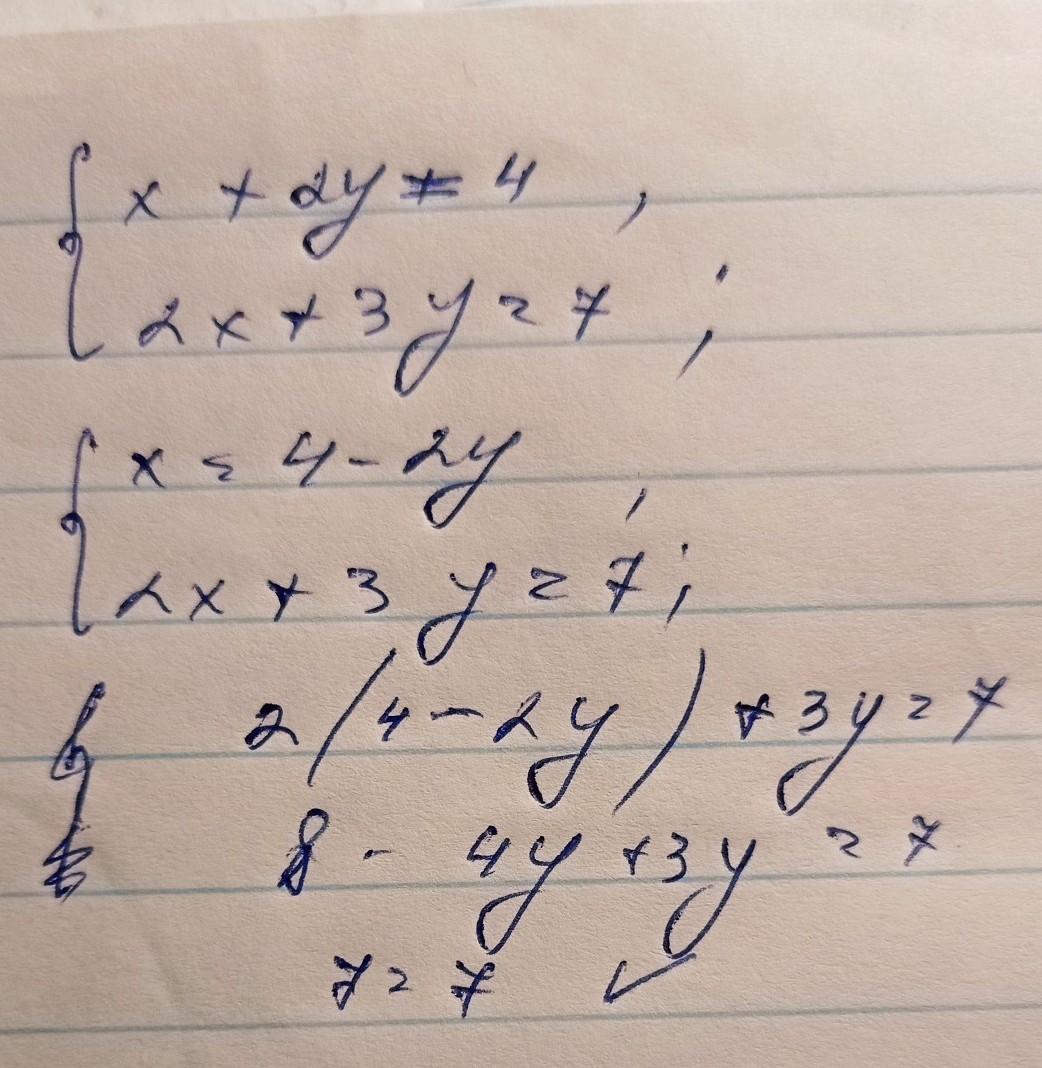 x + 2y = 4 ,
2x + 3y = 7 ;
x = 4 - 2y ,
2x + 3y = 7 ;
2(4 - 2y) + 3y = 7
8 - 4y + 3y = 7
7 = 7 ✓